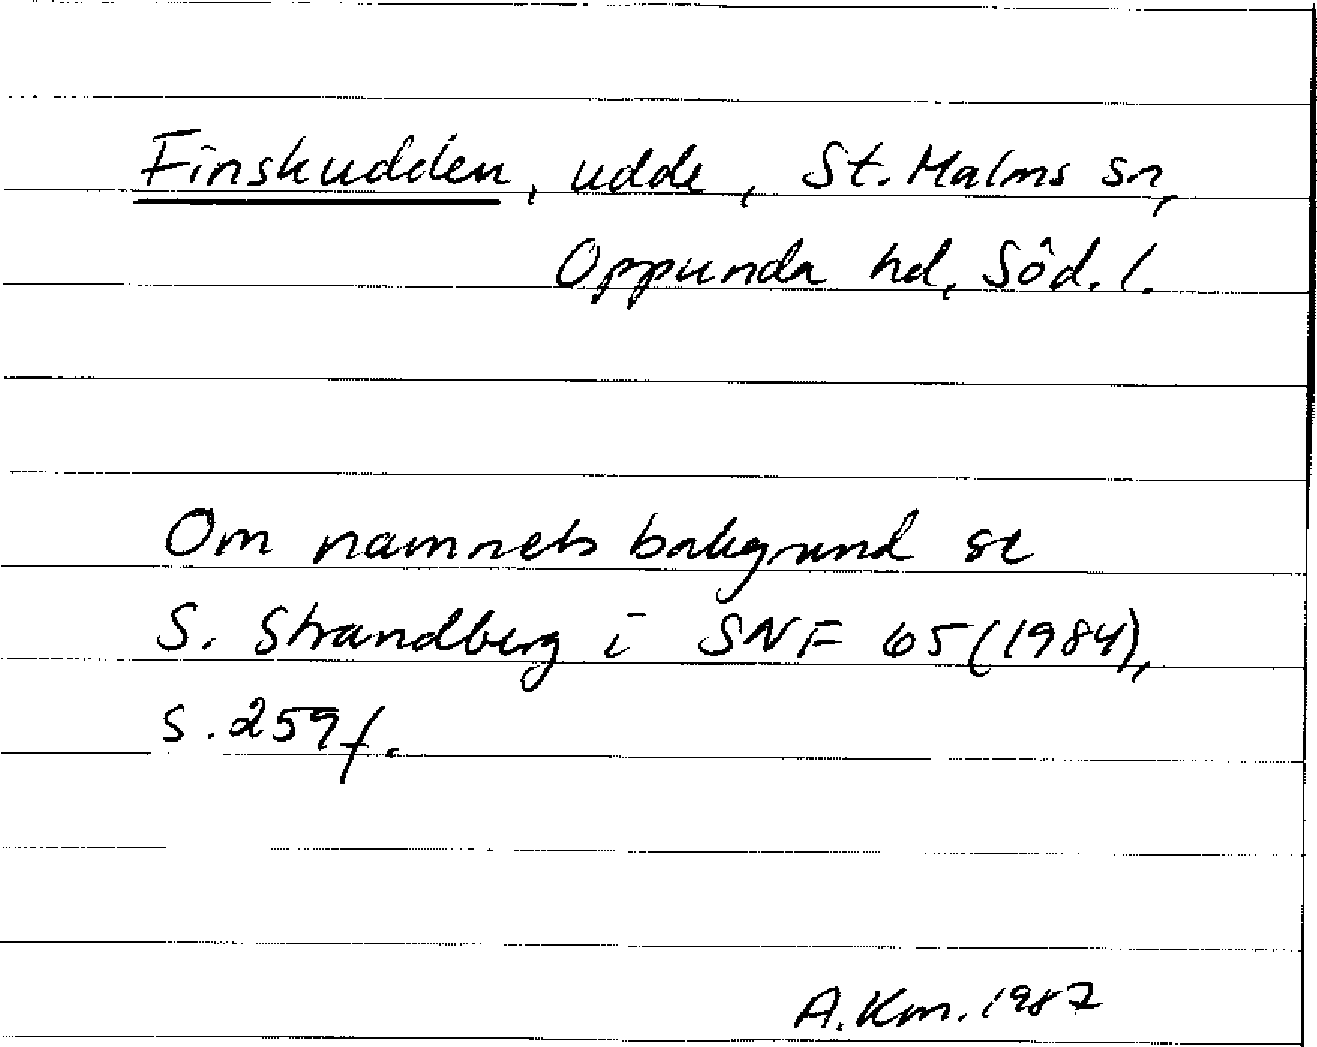 Finskudden, udde, St. Malms sn,
Oppunda hd, Söd. l.
Om namnets bakgrund se
S. Strandberg i SNF 65 (1984),
s. 259 f.
A. Km. 1987